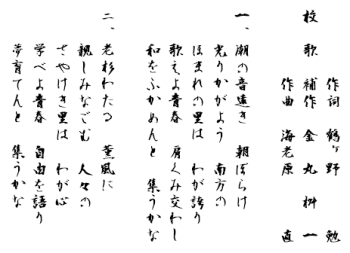 校歌
作詞 鶴ヶ野 勉
補作 金丸桝一
作曲 海老原 直
一、潮の音遠き 朝ぼらけ
光りかがよう 南方の
ほまれの里は わが誇り
歌えよ青春 肩くみ交わし
和をふかめんと 集うかな
二、老杉わたる 薫風に
親しみなごむ 人々の
さやけき里は わが心
学べよ青春 自由を語り
夢育てんと 集うかな